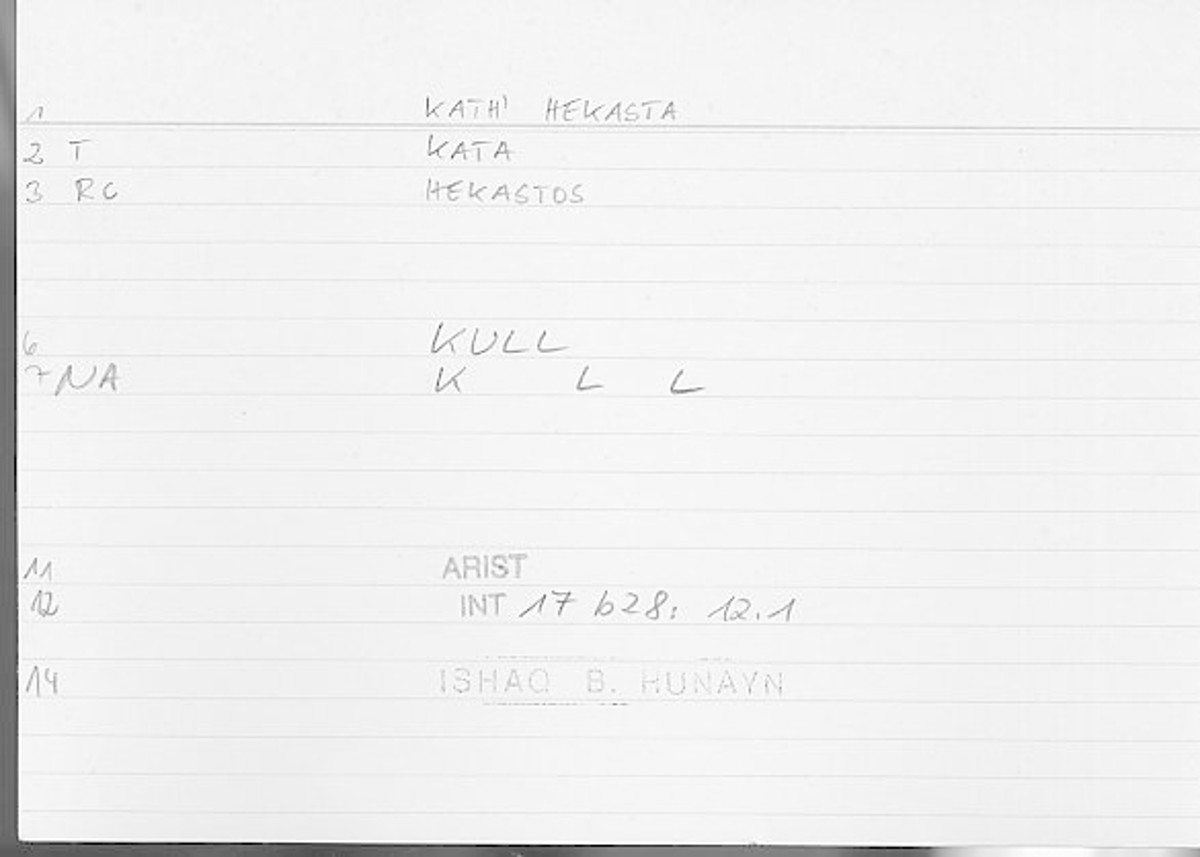 1 KATH' HEKASTA
2 T KATA
3 RC HEKASTOS
6 KULL
7 NA K L L
11 ARIST
12 INT 17 b28: 12.1
14 ISHAQ B. HUNAYN